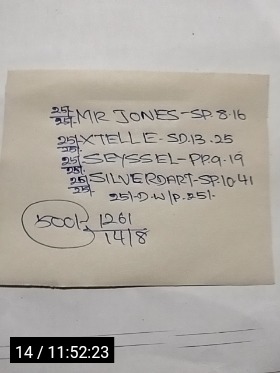 25/- 25/- MR JONES-SP.8.16
25/- 25/- XTELLE-SD.13.25
25/- 25/- SEYSSEL-PP.9.19
25/- 25/- SILVERDART-SP.10.41
25/-D-W/P.25/-
500/- 1261
1418
14 / 11:52:23